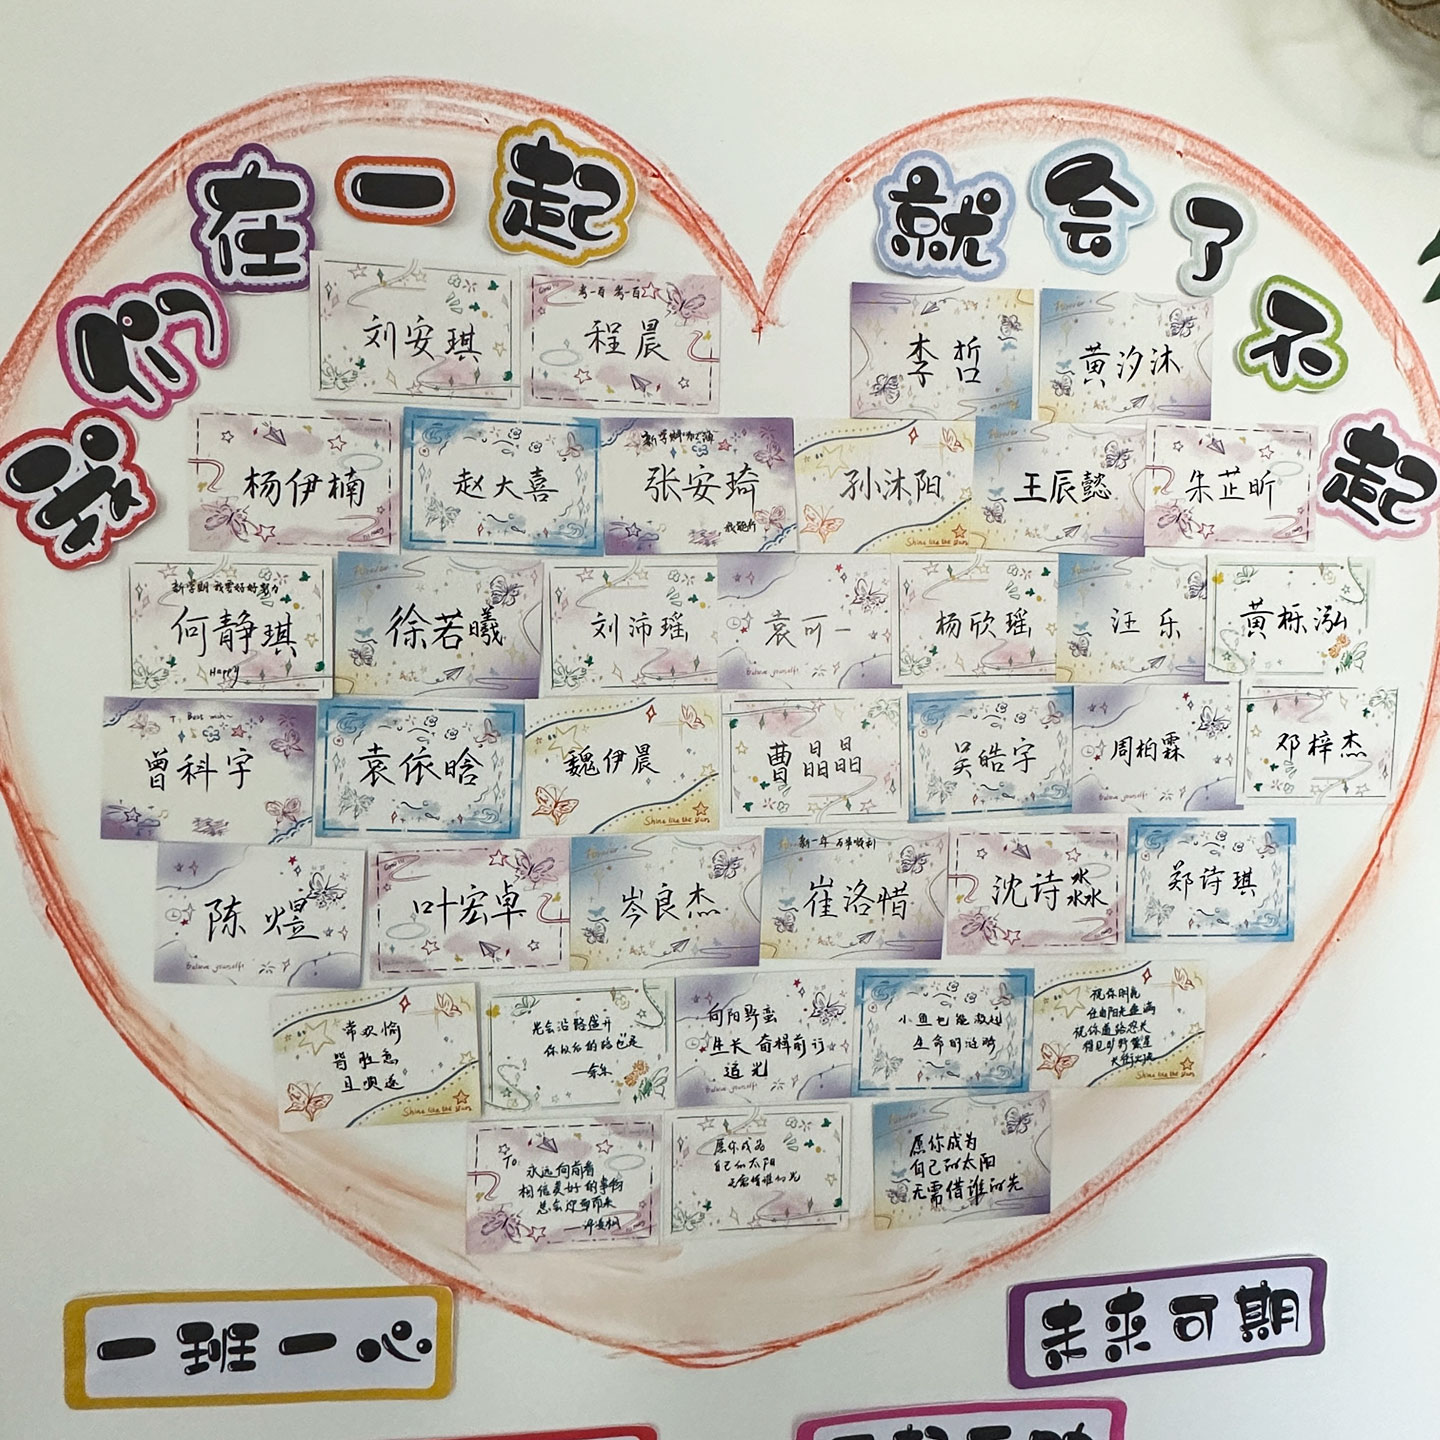 我们在一起
就会了不起
刘安琪
考一百 考一百
程晨
李哲
黄汐沐
杨伊楠
赵大喜
张安琦
孙沐阳
Shine like the stars
王辰懿
朱芷昕
新学期 我要好好努力
何静琪
Happy
徐若曦
刘沛瑶
袁可一
Believe yourself!
杨欣瑶
汪乐
黄栎泓
曾科宇
袁依晗
魏伊晨
Shine like the stars
曹晶晶
吴皓宇
周柏霖
Believe yourself!
邓梓杰
陈煊
Believe yourself!
叶宏卓
岑良杰
新一年 万事顺利
崔洛惜
沈诗淼
郑诗琪
常欢愉
皆胜意
且顺遂
Shine like the stars
花会沿路盛开
你以后的路也是
向阳野蛮
生长 奋楫前行
追光
Believe yourself!
小鱼也能激起
生命的涟漪
祝你明亮
Shine like the stars
To:
永远向前看
相信美好的事情
总会迎面而来
愿你成为
自己的太阳
无需借谁的光
愿你成为
自己的太阳
无需借谁的光
一班一心
未来可期